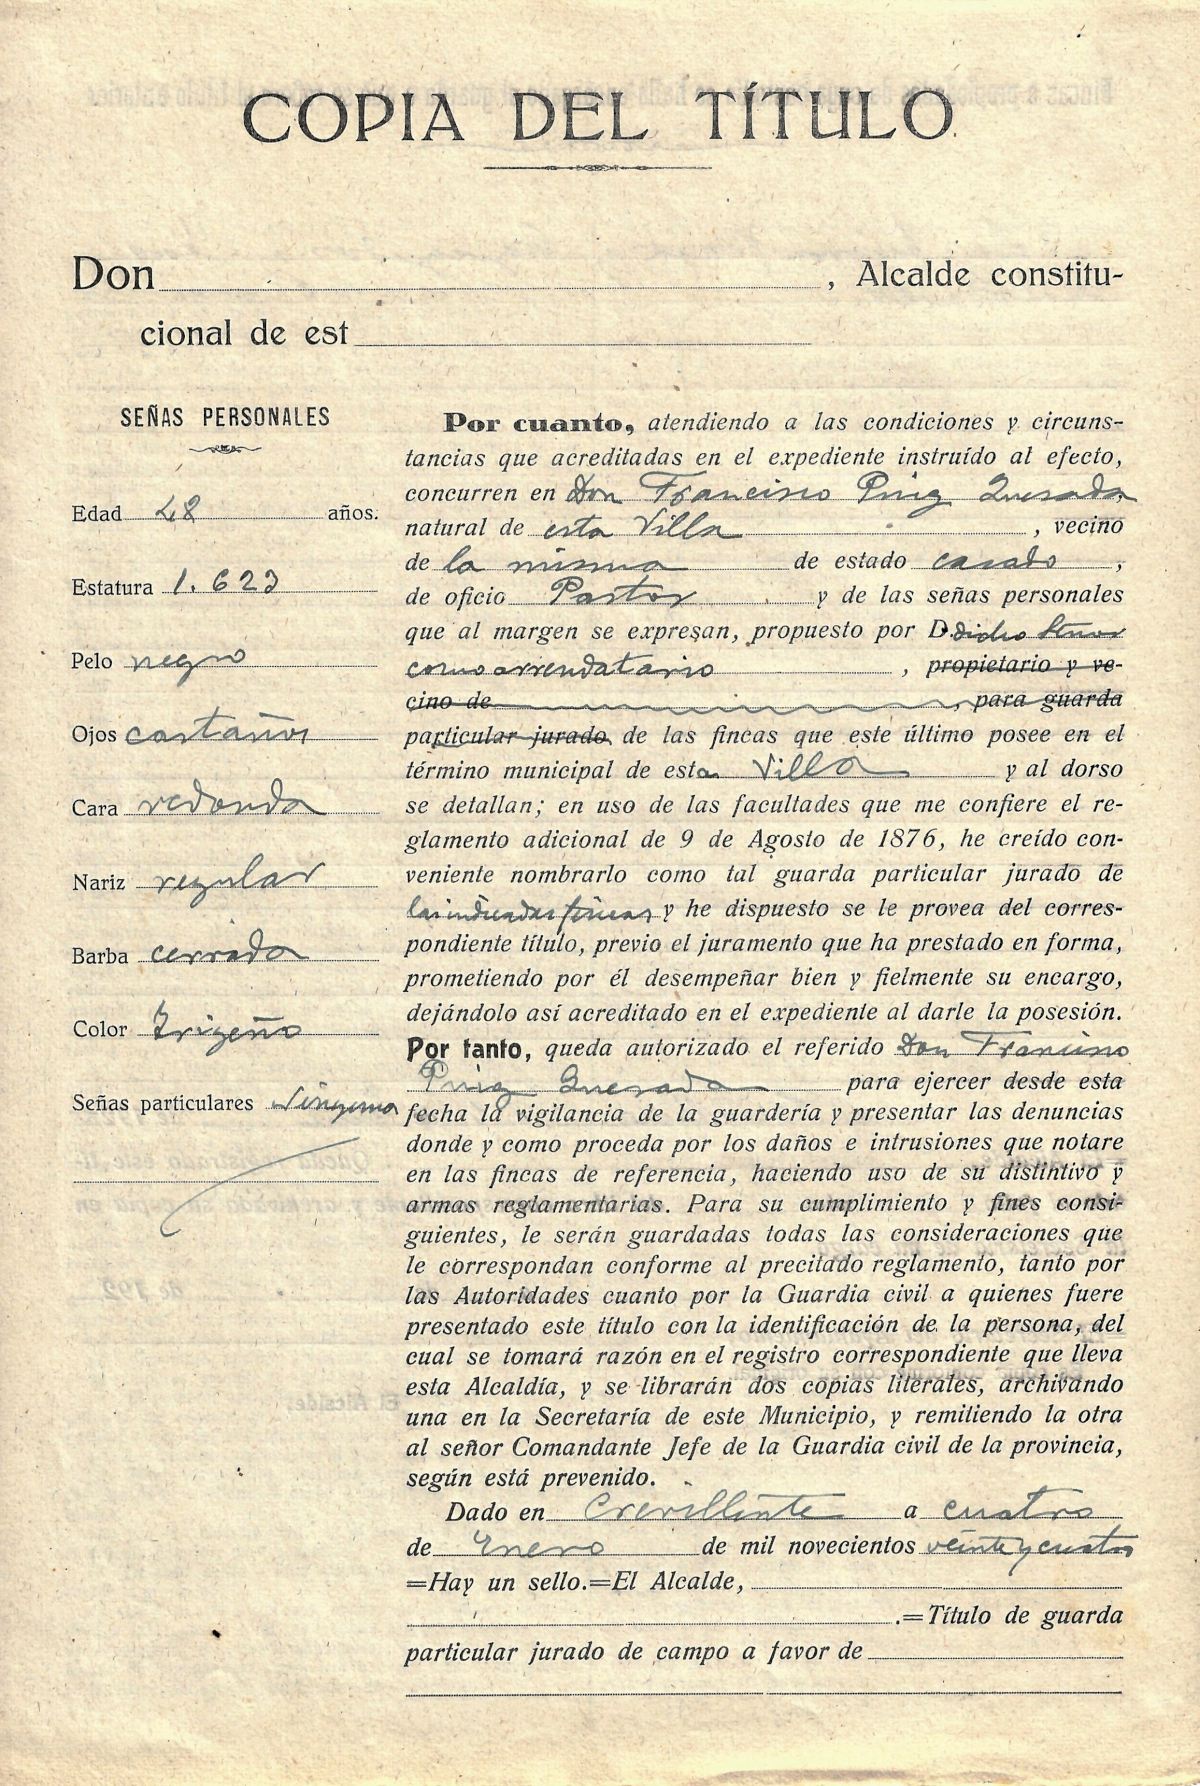 COPIA DEL TÍTULO
Don , Alcalde constitu-
cional de est
SEÑAS PERSONALES
Edad 48 años.
Estatura 1.623
Pelo negro
Ojos castaños
Cara redonda
Nariz regular
Barba cerrada
Color Trigeño
Señas particulares Ninguna
Por cuanto, atendiendo a las condiciones y circuns-
tancias que acreditadas en el expediente instruído al efecto,
concurren en Don Francisco Puig Quesada,
natural de esta Villa , vecino
de la misma de estado casado ,
de oficio Pastor y de las señas personales
que al margen se expresan, propuesto por D. dicho Señor
como arrendatario , propietario y ve-
cino de , para guarda
particular jurado de las fincas que este último posee en el
término municipal de esta Villa y al dorso
se detallan; en uso de las facultades que me confiere el re-
glamento adicional de 9 de Agosto de 1876, he creído con-
veniente nombrarlo como tal guarda particular jurado de
las indicadas fincas y he dispuesto se le provea del corres-
pondiente título, previo el juramento que ha prestado en forma,
prometiendo por él desempeñar bien y fielmente su encargo,
dejándolo así acreditado en el expediente al darle la posesión.
Por tanto, queda autorizado el referido Don Francisco
Puig Quesada para ejercer desde esta
fecha la vigilancia de la guardería y presentar las denuncias
donde y como proceda por los daños e intrusiones que notare
en las fincas de referencia, haciendo uso de su distintivo y
armas reglamentarias. Para su cumplimiento y fines consi-
guientes, le serán guardadas todas las consideraciones que
le correspondan conforme al precitado reglamento, tanto por
las Autoridades cuanto por la Guardia civil a quienes fuere
presentado este título con la identificación de la persona, del
cual se tomará razón en el registro correspondiente que lleva
esta Alcaldía, y se librarán dos copias literales, archivando
una en la Secretaría de este Municipio, y remitiendo la otra
al señor Comandante Jefe de la Guardia civil de la provincia,
según está prevenido.
Dado en Crevillente a cuatro
de Enero de mil novecientos veinte y cuatro
=Hay un sello.=El Alcalde,
.=Título de guarda
particular jurado de campo a favor de